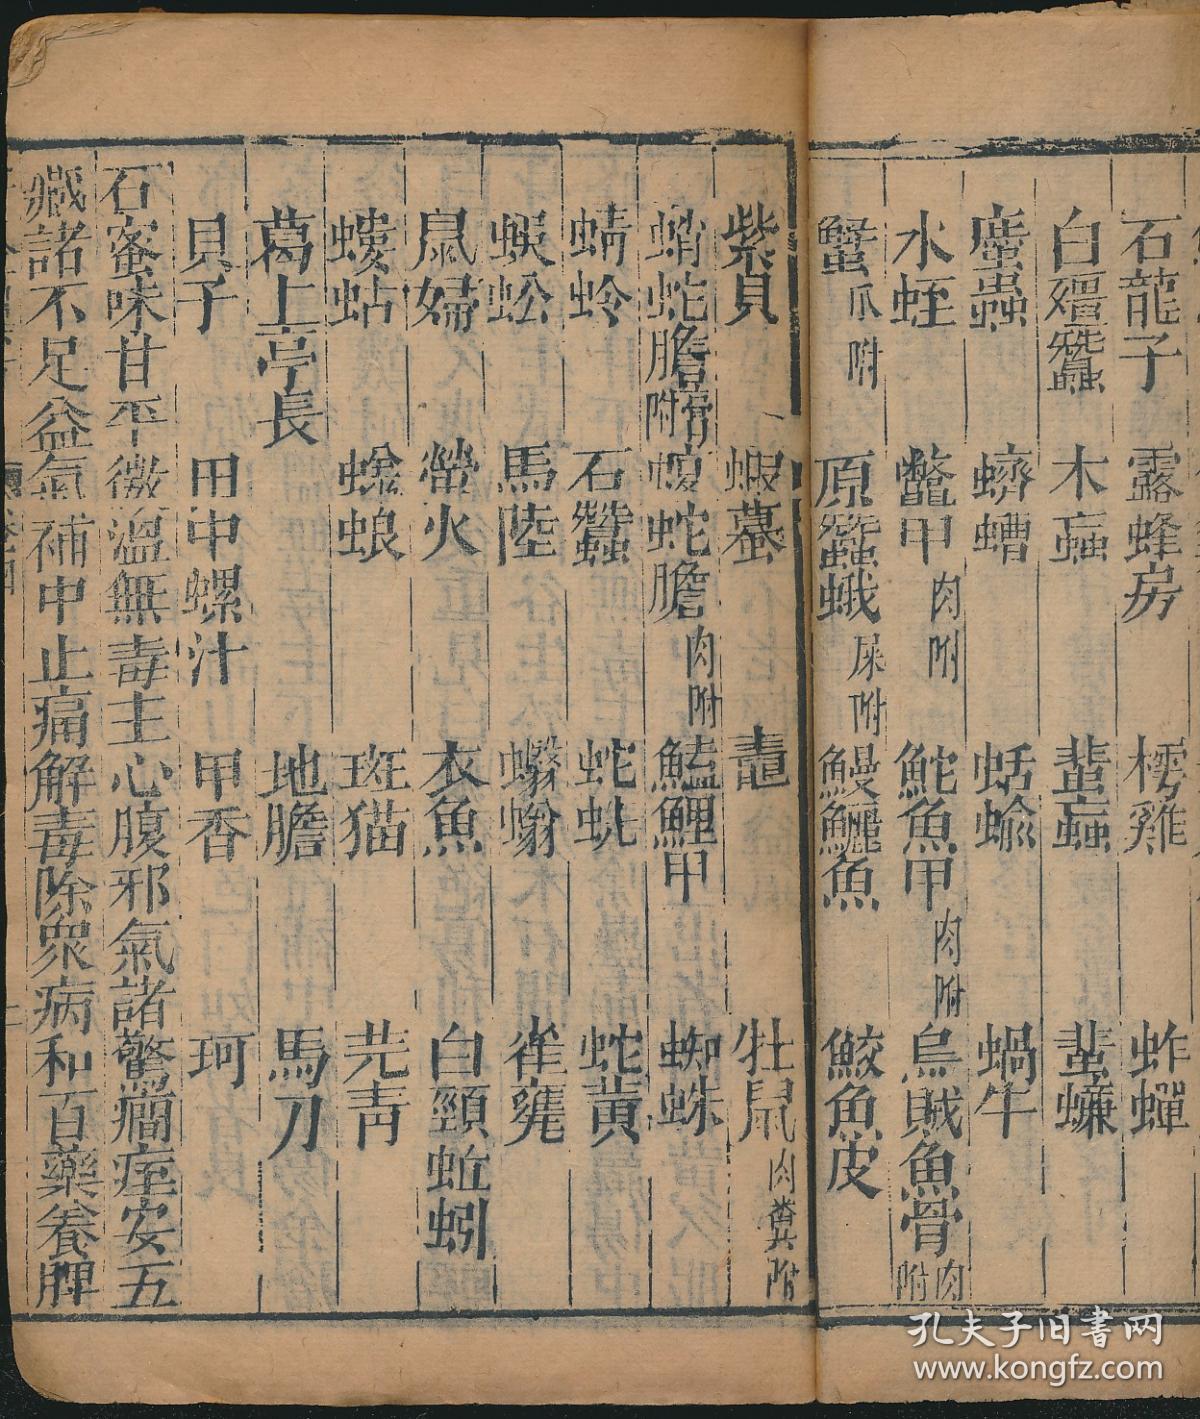 石龍子 露蜂房 樗雞 蚱蟬
白殭蠶 木䖟 蜚䖟 蜚蠊
䗪蟲 蠐螬 蛞蝓 蝸牛
水蛭 鼈甲肉附 鮀魚甲肉附 烏賊魚骨肉附
蟹爪附 原蠶蛾屎附 鰻鱺魚 鮫魚皮
紫貝 蝦蟇 鼃 牡鼠肉糞附
蚺蛇膽膏附 蝮蛇膽肉附 鯪鯉甲 蜘蛛
蜻蛉 石蠶 蛇蛻 蛇黃
蜈蚣 馬陸 蠮螉 雀甕
鼠婦 螢火 衣魚 白頸蚯蚓
螻蛄 蜣蜋 斑猫 芫青
葛上亭長 地膽 馬刀
貝子 田中螺汁 甲香 珂
石蜜味甘平微溫無毒主心腹邪氣諸驚癇痓安五
藏諸不足益氣補中止痛解毒除衆病和百藥養脾
孔夫子旧書网
www.kongfz.com